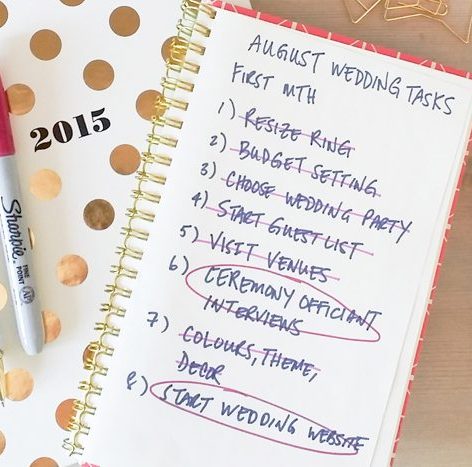 AUGUST WEDDING TASKS
FIRST MTH
1) RESIZE RING
2) BUDGET SETTING
3) CHOOSE WEDDING PARTY
4) START GUEST LIST
5) VISIT VENUES
6) CEREMONY OFFICIANT
INTERVIEWS
7) COLOURS, THEME,
DECOR
8) START WEDDING WEBSITE
2015
Sharpie
FINE
POINT
AP